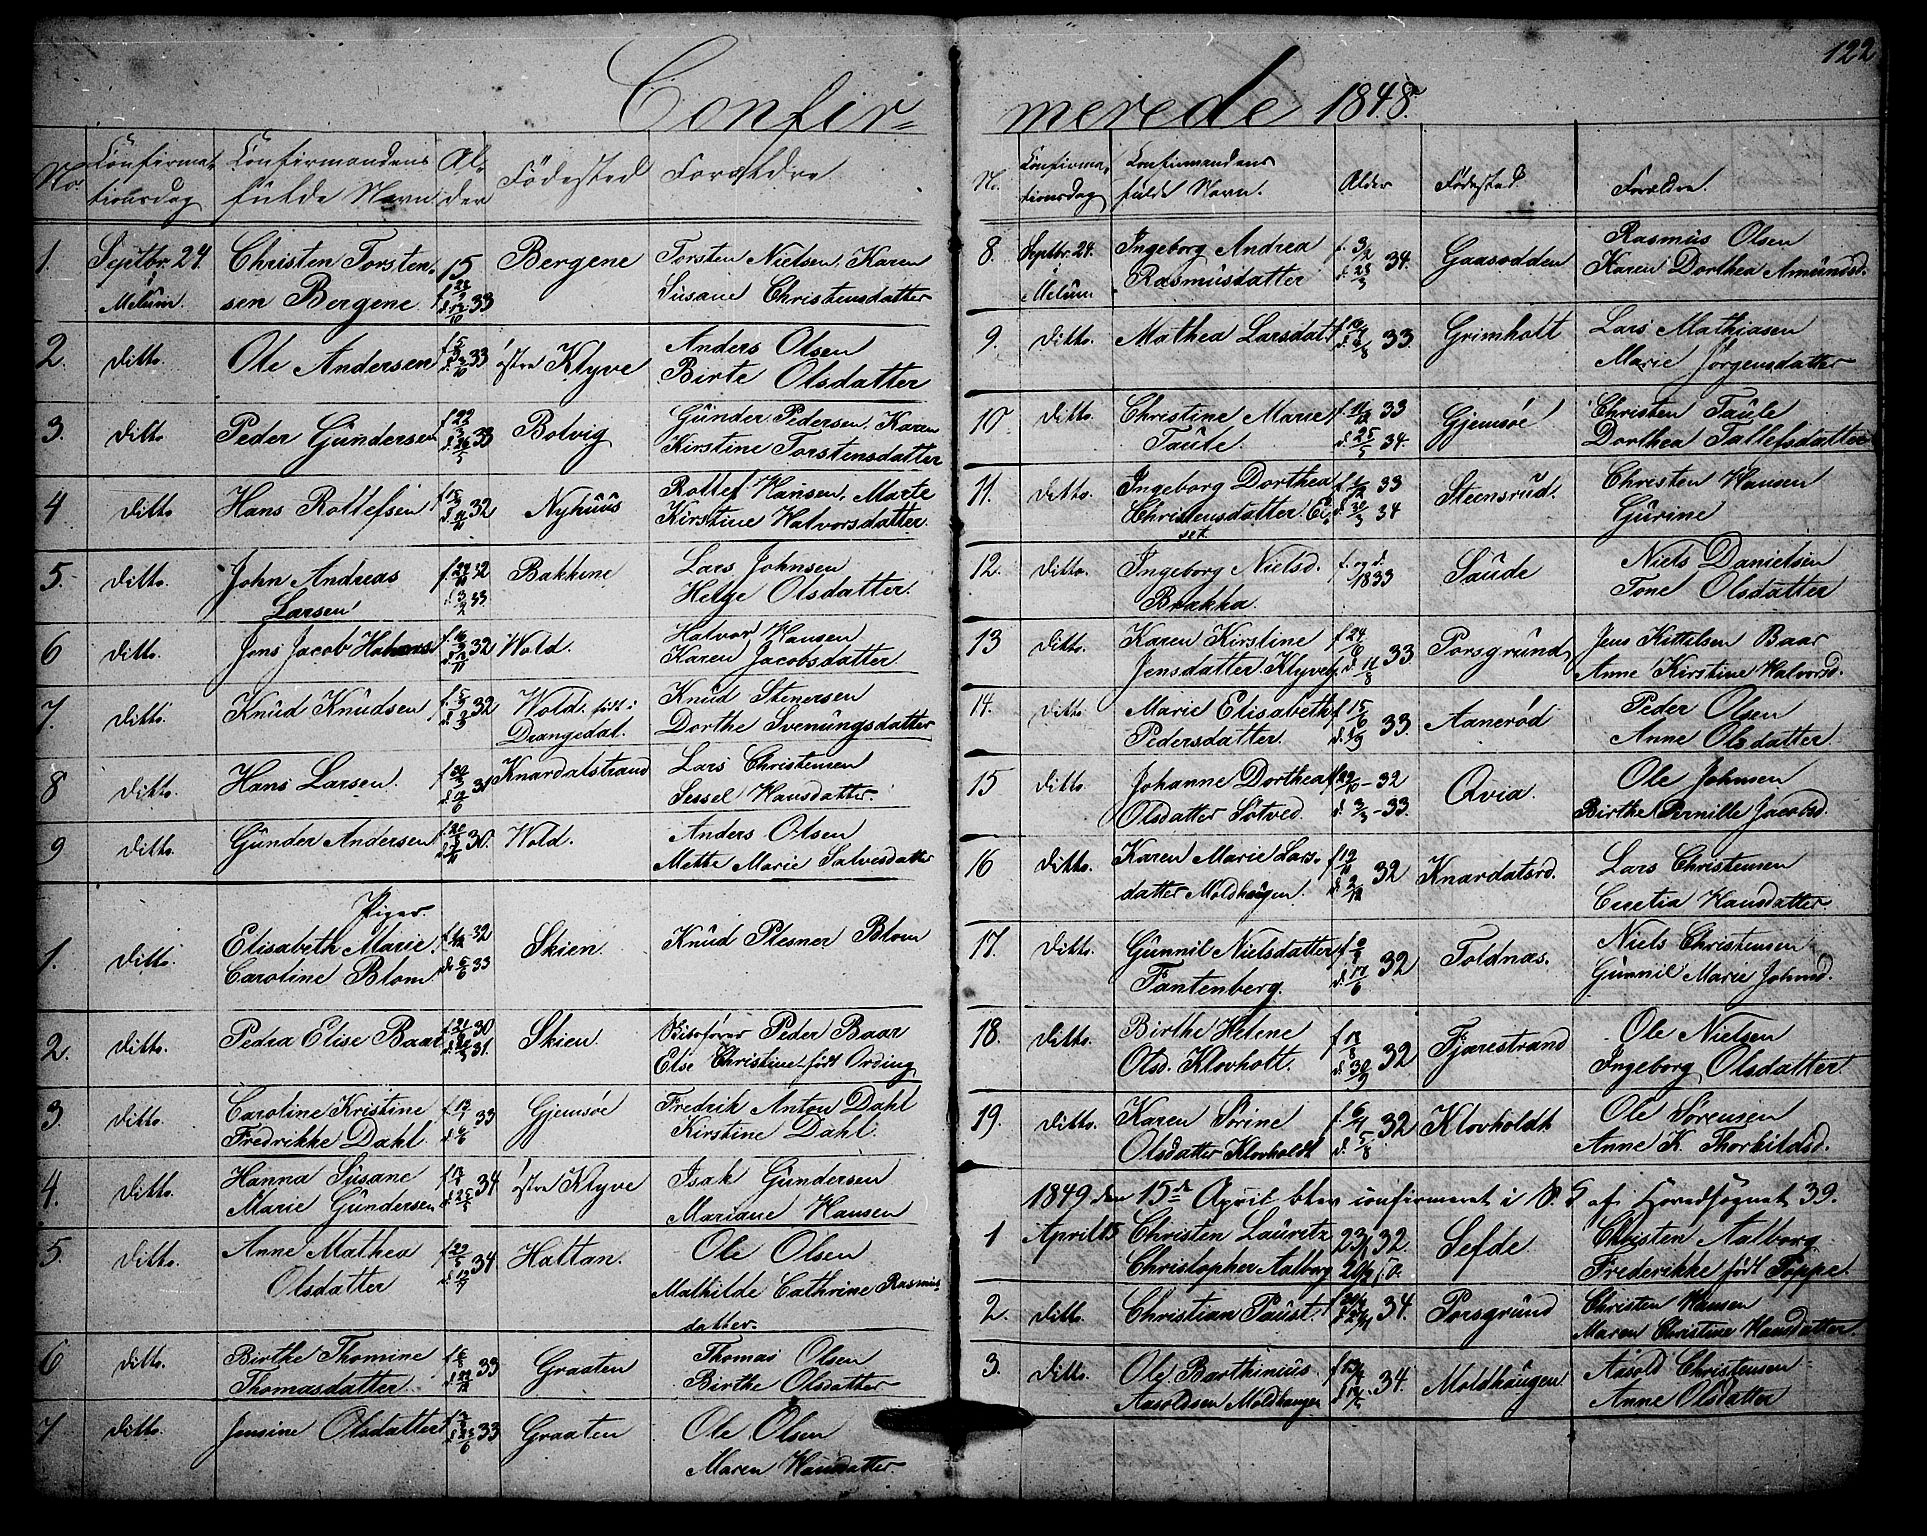 122
Confir=
merede 1848.
No Confirma-
tionsdag Confirmandens
fulde Navn Al-
der Födested Forældre
1. Septbr. 24.
i
Melum. Christen Torsten-
sen Bergene 15
33 Bergene Torsten Nielsen, Karen
Susane Christensdatter
2. ditto. Ole Andersen 33 östre Klyve Anders Olsen
Birte Olsdatter
3. ditto Peder Gundersen 33 Bolvig Gunder Pedersen, Karen
Kirstine Torstensdatter
4 ditto Hans Rollefsen 32 Nyhuus Rollef Hansen, Marte
Kirstine Halvorsdatter
5. ditto. John Andreas
Larsen 32
33 Bakkene Lars Johnsen
Helge Olsdatter.
6 ditto. Jens Jacob 32 Wold. Halvor Hansen
Karen Jacobsdatter
7. ditto. Knud Knudsen 32 Wold. født i
Drangedal. Knud Stenersen
Dorthe Svenungsdatter
8 ditto. Hans Larsen. 31 Knardalstrand Lars Christensen
Sessel Hansdatter.
9 ditto. Gunder Andersen 30. Wold. Anders Olsen
Mette Marie Salvesdatter
Piger.
1. ditto. Elisabeth Marie
Caroline Blom 32
33 Skien. Knud Plesner Blom
2. ditto. Pedra Elise Baar 30
31. Skien. Peder Baar
Else Christine født Ording
3. ditto. Caroline Kristine
Fredrikke Dahl 33 Gjemsøe Fredrik Anton Dahl
Kirstine Dahl.
4. ditto. Hanna Susane
Marie Gundersen 34 östre Klyve Isak Gundersen
Mariane Hansen
5. ditto. Anne Mathea
Olsdatter 34 Hattan. Ole Olsen
Mathilde Cathrine Rasmus-
datter.
6 ditto. Birthe Thomine
Thomasdatter 33 Graaten Thomas Olsen
Birthe Olsdatter
7 ditto. Jensine Olsdatter 33 Graaten Ole Olsen
Maren Hansdatter
N. Confirma-
tionsdag Confirmandens
fulde Navn. Alder Födested. Forældre.
8. Septbr. 24.
i Melum Ingeborg Andrea
Rasmusdatter f. 3/2
34. Gaasodden Rasmus Olsen
Karen Dorthea Amundsd.
9. ditto. Mathea Larsdatt. 33. Grimholt Lars Mathiasen
Marie Jörgensdatter
10 ditto. Christine Marie
Taule. 33
d. 25/5 34. Gjemsøe Christen Taule
Dorthea Tallefsdatter
11. ditto. Ingeborg Dorthea
Christensdatter 33
34 Steensrud. Christen Hansen
Gurine
12. ditto. Ingeborg Nielsd.
Brakka. f. og d.
1833 Saude Niels Danielsen
Tone Olsdatter
13 ditto. Karen Kirstine
Jensdatter Klyve f 24/6
d. 11/8 33. Porsgrund Jens Kittilsen Baar
Anne Kirstine Halvorsd.
14. ditto. Marie Elisabeth
Pedersdatter. f 15/6
33. Aanerød Peder Olsen
Anne Olsdatter.
15 ditto. Johanne Dorthea
Olsdatter Sotved. - 32
d. 3/3 - 33. Qvia. Ole Johnsen
Birthe Pernille Jacobsd.
16 ditto. Karen Marie Lars-
datter Moldhaugen. 32 Knardalsrd. Lars Christensen
Cecelia Hansdatter.
17. ditto. Gunnil Nielsdatter
Fantenberg. d. 17/6 32 Toldnas. Niels Christensen
Gunnil Marie Johnsd.
18. ditto. Birthe Helene
Olsd. Klovholt. d. 30/9 32 Fjærestrand Ole Nielsen
Ingeborg Olsdatter
19. ditto. Karen Sörine
Olsdatter Klovholdt d. 5/8 32 Klovholdt Ole Sörensen
Anne K. Thorkildsd.
1849 den 15de April blev confirmeret i af Hovedsognet 39.
1 April 15 Christen Lauritz
Christopher Aalborg 32. Sefde. Christen Aalborg
Frederikke født Töppe.
2. ditto. Christian Paust. 34. Porsgrund Christen Hansen
Maren Christine Hansdatter.
3. ditto. Ole Barthinius
Aasoldsen Moldhaugen 34. Moldhaugen Aasold Christensen
Anne Olsdatter